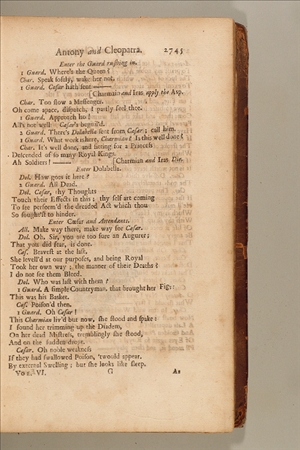 Antony and Cleopatra. 2745
Enter the Guard rushing in.
1 Guard. Where's the Queen?
Char. Speak softly, wake her not.
1 Guard. Cæsar hath sent ——
[Charmian and Iras apply the Asp.
Char. Too slow a Messenger.
Oh come apace, dispatch, I partly feel thee.
1 Guard. Approach ho!
All's not well. Cæsar's beguil'd.
2 Guard. There's Dolabella sent from Cæsar; call him.
1 Guard. What work is here, Charmian? Is this well done?
Char. It's well done, and fitting for a Princess
Descended of so many Royal Kings.
Ah Soldiers! —— [Charmian and Iras Die.
Enter Dolabella.
Dol. How goes it here?
2 Guard. All Dead.
Dol. Cæsar, thy Thoughts
Touch their Effects in this; thy self art coming
To see perform'd the dreaded Act which thou
So sought'st to hinder.
Enter Cæsar and Attendants.
All. Make way there, make way for Cæsar.
Dol. Oh, Sir, you are too sure an Augurer;
That you did fear, is done.
Cæs. Bravest at the last,
She levell'd at our purposes, and being Royal
Took her own way; the manner of their Deaths?
I do not see them Bleed.
Dol. Who was last with them?
1 Guard. A simple Countryman, that brought her Figs:
This was his Basket.
Cæs. Poison'd then.
1 Guard. Oh Cæsar!
This Charmian liv'd but now, she stood and spake:
I found her trimming up the Diadem,
On her dead Mistress, tremblingly she stood,
And on the sudden dropt.
Cæsar. Oh noble weakness
If they had swallowed Poison, 'twould appear,
By external Swelling; but she looks like sleep,
Vol. VI. G As